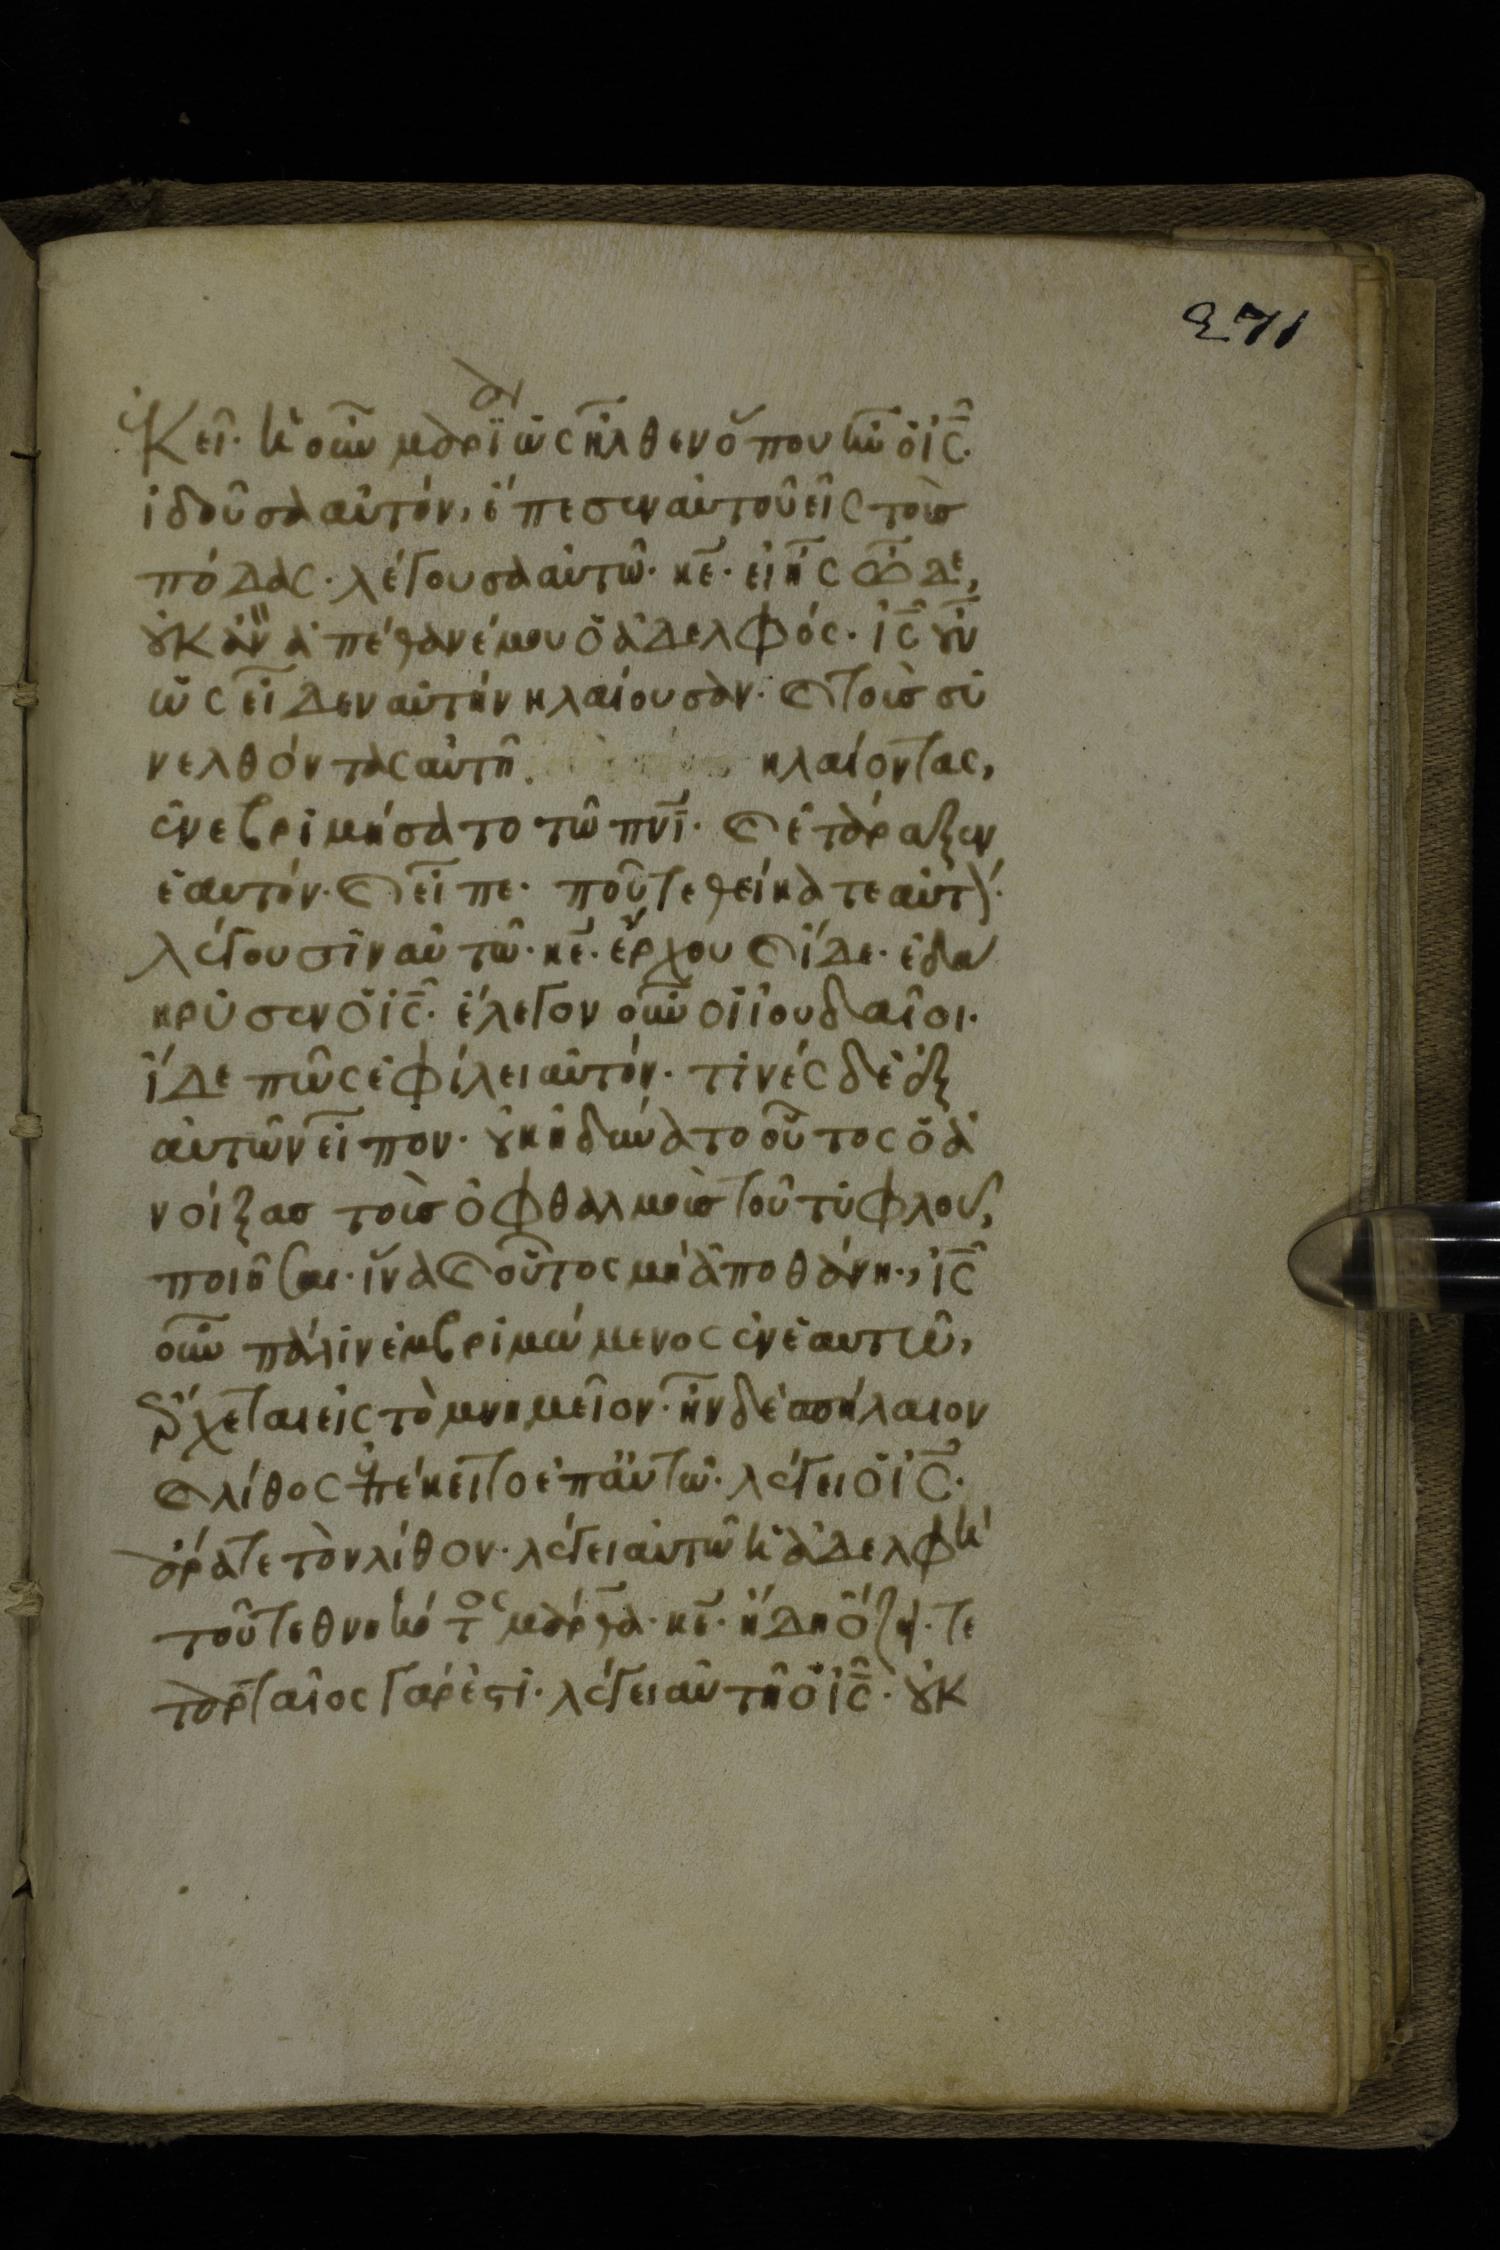 271
κεῖ. ἡ οὖν μαρία ὡς ἦλθεν ὅπου ἦν ὁ ις̅.
ἰδοῦσα αὐτόν, ἔπεσεν αὐτοῦ εἰς τοὺσ
πόδας. λέγουσα αὐτῶ. κε̅. εἰ ἦς ὧδε,
οὐκ ἂν ἀπέθανέ μου ὁ ἀδελφός. ις̅ οὖν
ὡς εἶδεν αὐτὴν κλαίουσαν. καὶ τοὺσ συ
νελθόντας αὐτῆ κλαίοντας,
ἐνεβριμήσατο τῶ πνι̅. καὶ ἐτάραξεν
ἑαυτόν. καὶ εἶπε. ποῦ τεθείκατε αὐτόν.
λέγουσιν αὐτῶ. κε̅. ἔρχου καὶ ἴδε. ἐδά
κρυσεν ὁ ις̅. ἔλεγον οὖν οἱ ἰουδαῖοι.
ἴδε πῶς ἐφίλει αὐτόν. τινές δὲ ἐξ
αὐτῶν εἶπον. οὐκ ἠδύνατο οὗτος ὁ ἀ
νοίξασ τοὺσ ὀφθαλμοὺσ τοῦ τυφλοῦ,
ποιῆσαι. ἵνα καὶ οὗτος μὴ ἀποθάνη., ις̅
οὖν πάλιν ἐμβριμώμενος ἐν ἑαυτῶ,
ἔρχεται εἰς τὸ μνημεῖον. ἦν δὲ σπήλαιον
καὶ λίθος ἐπέκειτο ἐπ αὐτῶ. λέγει ὁ ις̅.
ἄρατε τὸν λίθον. λέγει αὐτῶ ἡ ἀδελφὴ
τοῦ τεθνηκότος μάρθα. κε̅. ἤδη ὄζει. τε
ταρταῖος γάρ ἐστι. λέγει αὐτῆ ὁ ις̅. οὐκ